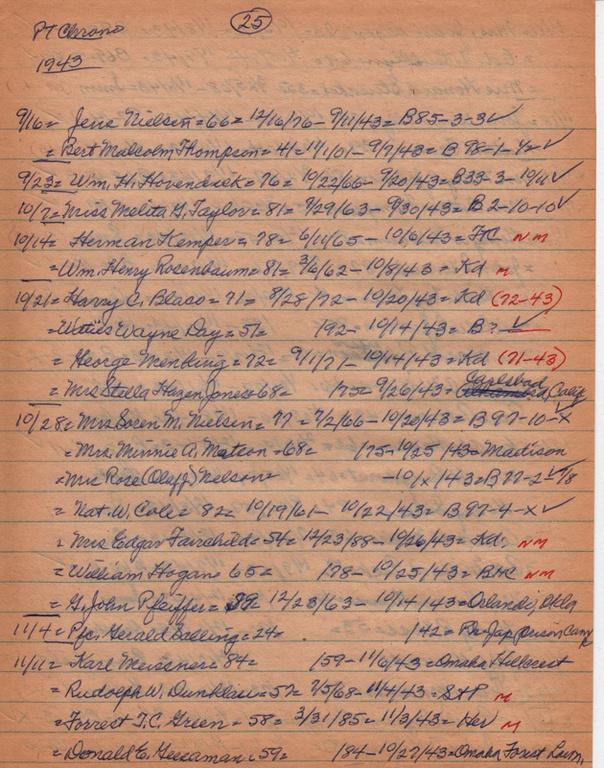 PT Chrono (25)
1943
9/16 = Jens Nielsen = 66 = 12/16/76 - 9/11/43 = B85-3-3 ✓
= Bert Malcolm Thompson = 41 = 11/1/01 - 9/7/43 = B 98-1-½ ✓
9/23 = Wm. H. Hovendick = 76 = 10/22/66 - 9/20/43 = B33-3-10/11 ✓
10/7 = Miss Melita G. Taylor = 81 = 7/29/63 - 9/30/43 = B 2-10-10 ✓
10/14 = Herman Kemper = 78 = 6/11/65 - 10/6/43 = HC NM
= Wm. Henry Rosenbaum = 81 = 3/6/62 - 10/8/43 = Kd M
10/21 = Harry C. Blaco = 71 = 8/28/72 - 10/20/43 = Kd (72-43)
= Wayne Day = 51 /92 - 10/14/43 = B? ✓
= George Menking = 72 = 9/1/71 - 10/14/43 = Kd (71-43)
= Mrs Stella Hazen Jones = 68 = /75 = 9/26/43 = Carlsbad, Calif
10/28 = Mrs Soren M. Nielsen = 77 = 7/2/66 - 10/20/43 = B 97-10-X
= Mrs. Minnie A. Matson = 68 = /75 - 10/25/43 = Madison
= Mrs Rose (Olaff) Nelson = - 10/x/43 = B 77-2-7/8
= Nat. W. Cole = 82 = 10/19/61 - 10/22/43 = B 97-4-X ✓
= Mrs Edgar Fairchild = 54 = 12/23/88 - 10/26/43 = Kd. NM
= William Hogan = 65 = /78 - 10/25/43 = BHC NM
= G. John Pfeiffer = 79 = 12/23/63 - 10/14/43 = Okla
11/4 = Pfc. Gerald = 24 = /42 = Jap prison Camp
11/11 = Karl Meisner = 84 = /59 - 11/6/43 = Omaha Hillcrest
= Rudolph W. Dunklau = 57 = 7/5/68 - 11/4/43 = StP M
= Forrest T.C. Green = 58 = 3/31/85 = 11/3/43 = Her M
= Donald E. Gessaman = 59 = /84 - 10/27/43 = Omaha Forest Lawn,